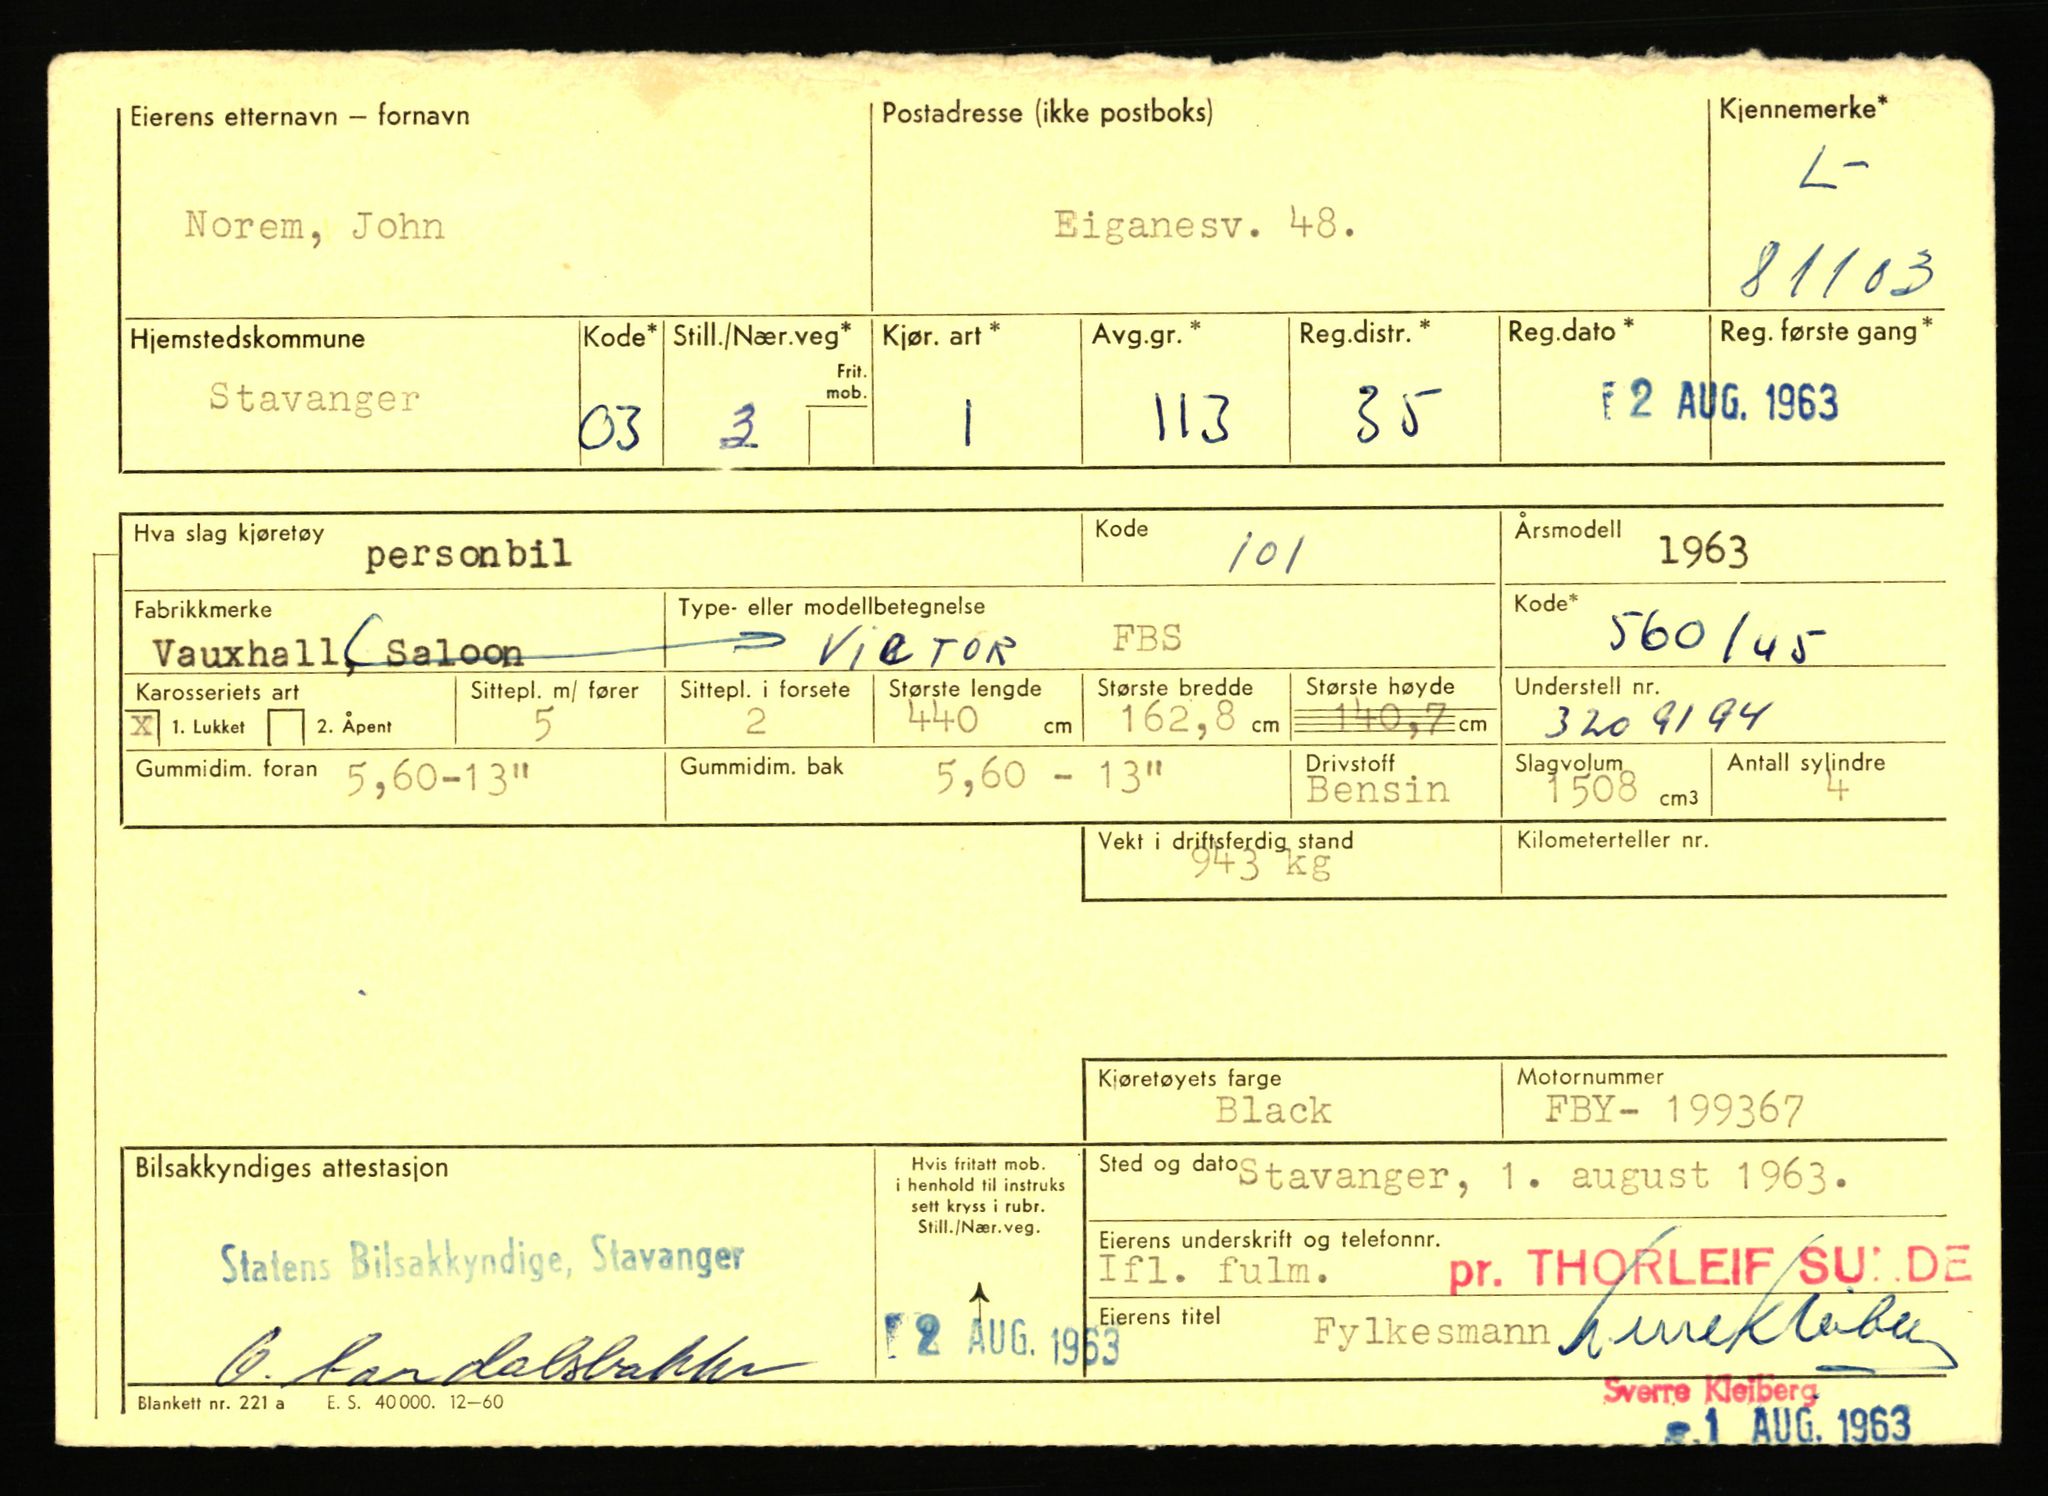 Eierens etternavn – fornavn Postadresse (ikke postboks) Kjennemerke*
L-
Norem, John Eiganesv. 48.
81103
Hjemstedskommune Kode* Still./Nær.veg* Kjør. art* Avg.gr.* Reg.distr.* Reg.dato* Reg. første gang*
Frit.
mob.
Stavanger 03 3 1 113 35 2 AUG. 1963
Hva slag kjøretøy personbil Kode 101 Årsmodell 1963
Fabrikkmerke Type- eller modellbetegnelse Kode*
Vauxhall, Saloon VICTOR FBS 560/45
Karosseriets art Sittepl. m/ fører Sittepl. i forsete Største lengde Største bredde Største høyde Understell nr.
X 1. Lukket 2. Åpent 5 2 440 cm 162,8 cm 140,7 cm 3209194
Gummidim. foran 5,60-13" Gummidim. bak 5,60 - 13" Drivstoff Slagvolum Antall sylindre
Bensin 1508 cm3 4
Vekt i driftsferdig stand Kilometerteller nr.
943 kg
Kjøretøyets farge Motornummer
Black FBY- 199367
Bilsakkyndiges attestasjon Hvis fritatt mob. Sted og dato Stavanger, 1. august 1963.
i henhold til instruks
sett kryss i rubr.
Still./Nær.veg.
Statens Bilsakkyndige, Stavanger Eierens underskrift og telefonnr.
Ifl. fulm. pr. THORLEIF SU DE
Eierens titel Fylkesmann
2 AUG. 1963
Blankett nr. 221 a E. S. 40000. 12–60
Sverre Kleiberg
1 AUG. 1963